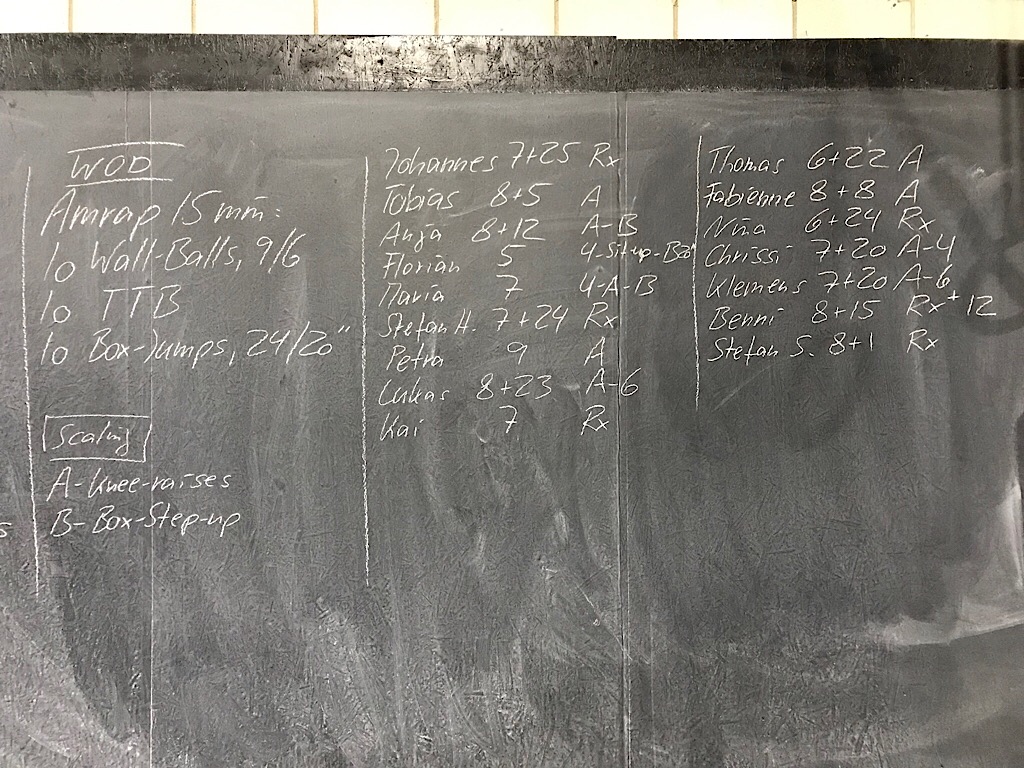 WOD
Amrap 15 min:
10 Wall-Balls, 9/6
10 TTB
10 Box-Jumps, 24/20"
Scaling
A-Knee-raises
B-Box-Step-up
s
Johannes 7+25 Rx
Tobias 8+5 A
Anja 8+12 A-B
Florian 5 4-Sit-up-Box
Maria 7 4-A-B
Stefan H. 7+24 Rx
Petra 9 A
Lukas 8+23 A-6
Kai 7 Rx
Thomas 6+22 A
Fabienne 8+8 A
Nina 6+24 Rx
Chrissi 7+20 A-4
Klemens 7+20 A-6
Benni 8+15 Rx+12
Stefan S. 8+1 Rx